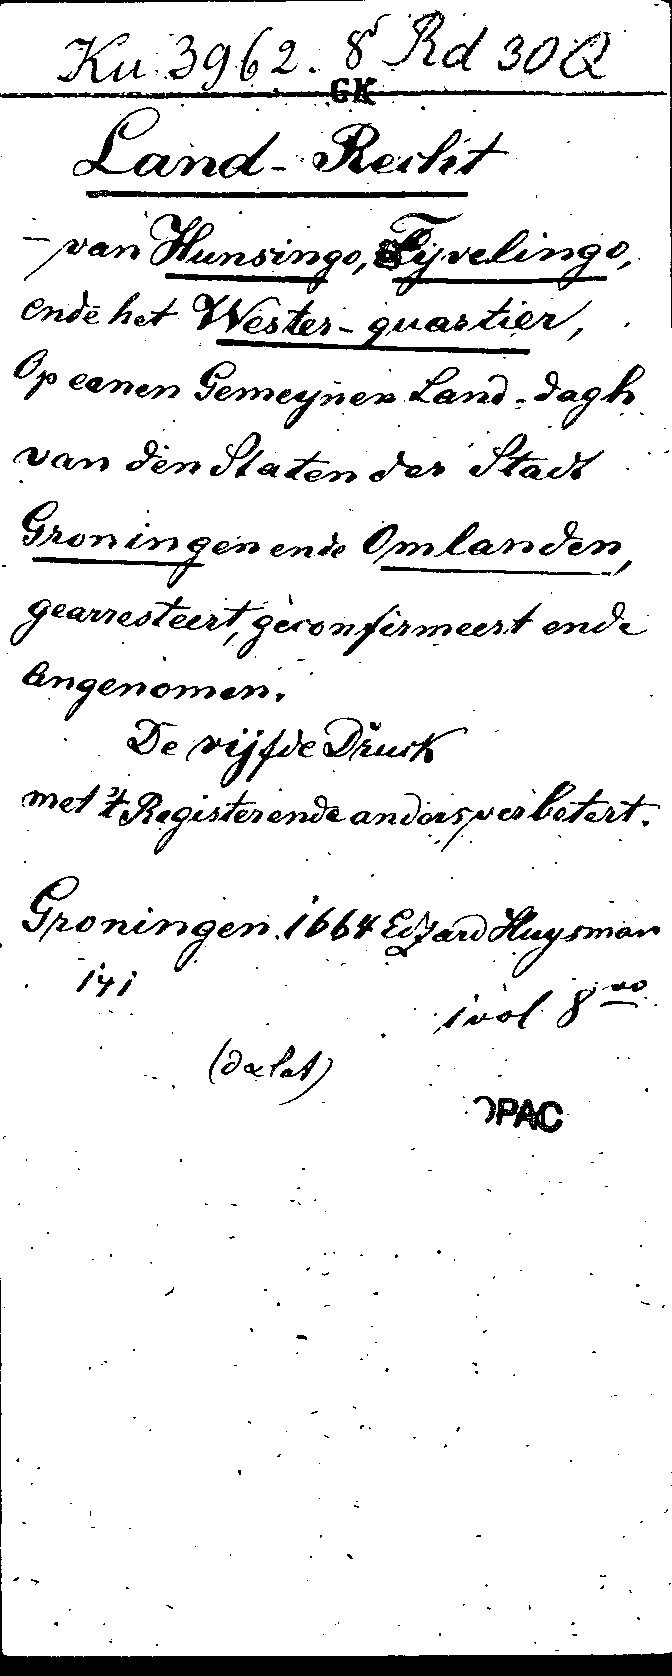 Ku 3962. 8° Rd 30Q
GK
Land-Recht
- van Hunsingo, Fijvelingo,
ende het Wester-quartier,
Op eenen Gemeynen Land-dagh
van den Staten der Stadt
Groningen ende Omlanden,
gearresteert, geconfirmeert ende
Angenomen.
De vijfde Druck
met 't Register ende anders, verbetert.
Groningen. 1664 Edzard Huysman
141
1 vol 8vo
OPAC